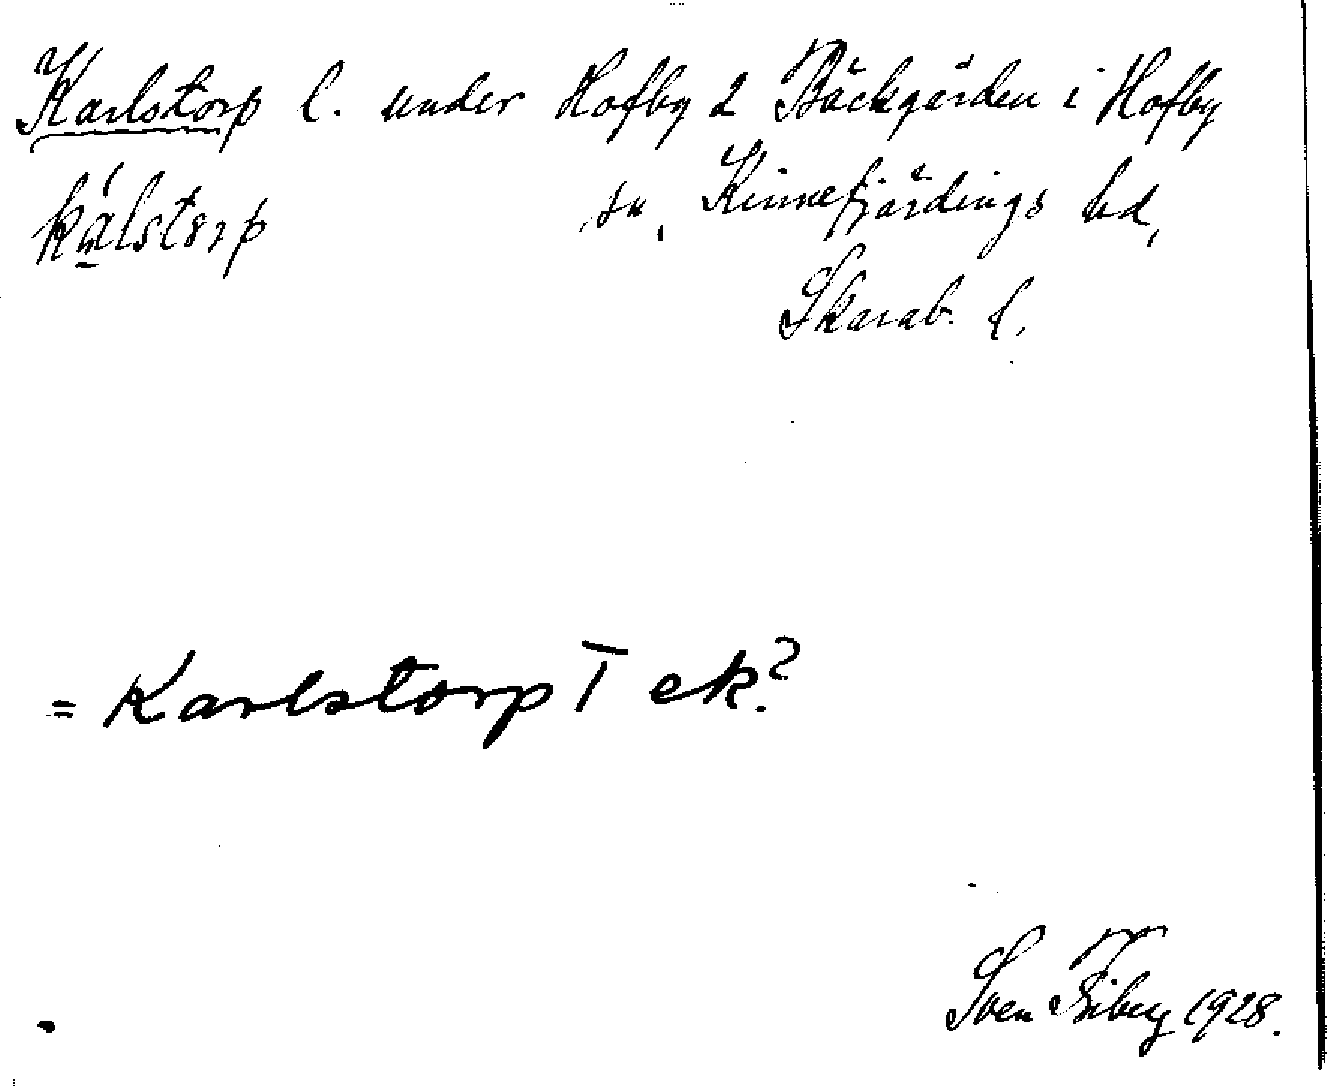 Karlstorp l. under Hofby 2 Bäckgården i Hofby
kálstorp sn, Kinnefjärdings hd,
Skarab. l.
= Karlstorp T ek?
Sven Fiberg 1928.